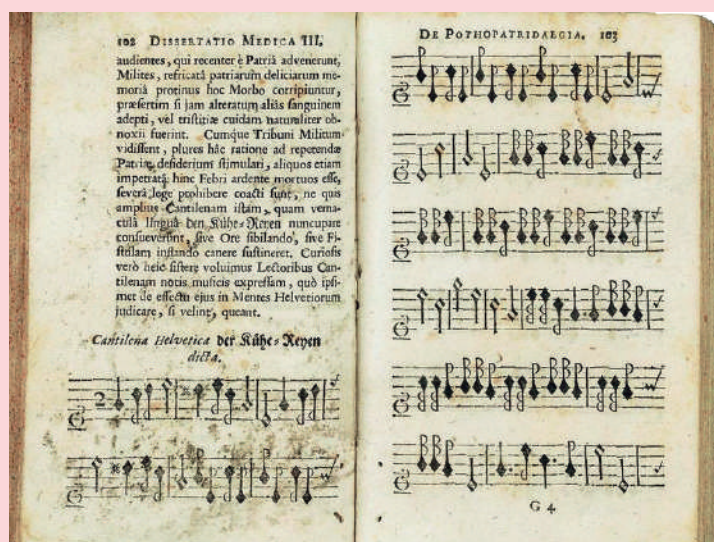 102 DISSERTATIO MEDICA III.
audientes, qui recenter è Patriâ advenerunt,
Milites, refricatâ patriarum deliciarum me-
moriâ protinus hoc Morbo corripiuntur,
præsertim si jam alteratum aliàs sanguinem
adepti, vel tristitiæ cuidam naturaliter ob-
noxii fuerint. Cumque Tribuni Militum
vidissent, plures hâc ratione ad repetendæ
Patriæ desiderium stimulari, aliquos etiam
impetratâ hinc Febri ardente mortuos esse,
severâ lege prohibere coacti sunt, ne quis
amplius Cantilenam istam, quam verna-
culâ linguâ den Kühe-Reyen nuncupare
consueverunt, sive Ore sibilando, sive Fi-
stulam inflando canere sustineret. Curiosis
verò heic sistere voluimus Lectoribus Can-
tilenam notis musicis expressam, quò ipsi-
met de effectu ejus in Mentes Helvetiorum
judicare, si velint, queant.
Cantilena Helvetica der Kühe-Reyen
dicta.
2
DE POTHOPATRIDALGIA. 103
G 4